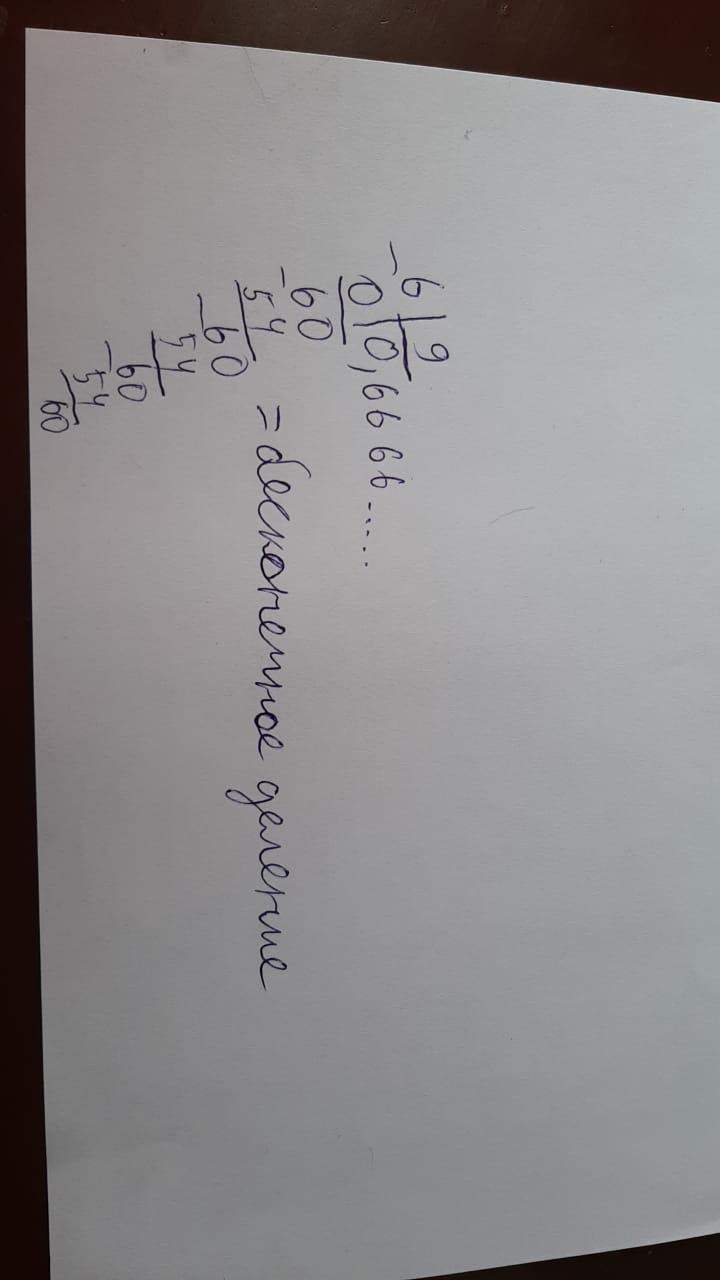 -6|9
0|0,6666.....
-60
54
-60
54
-60
54
60
= бесконечное деление